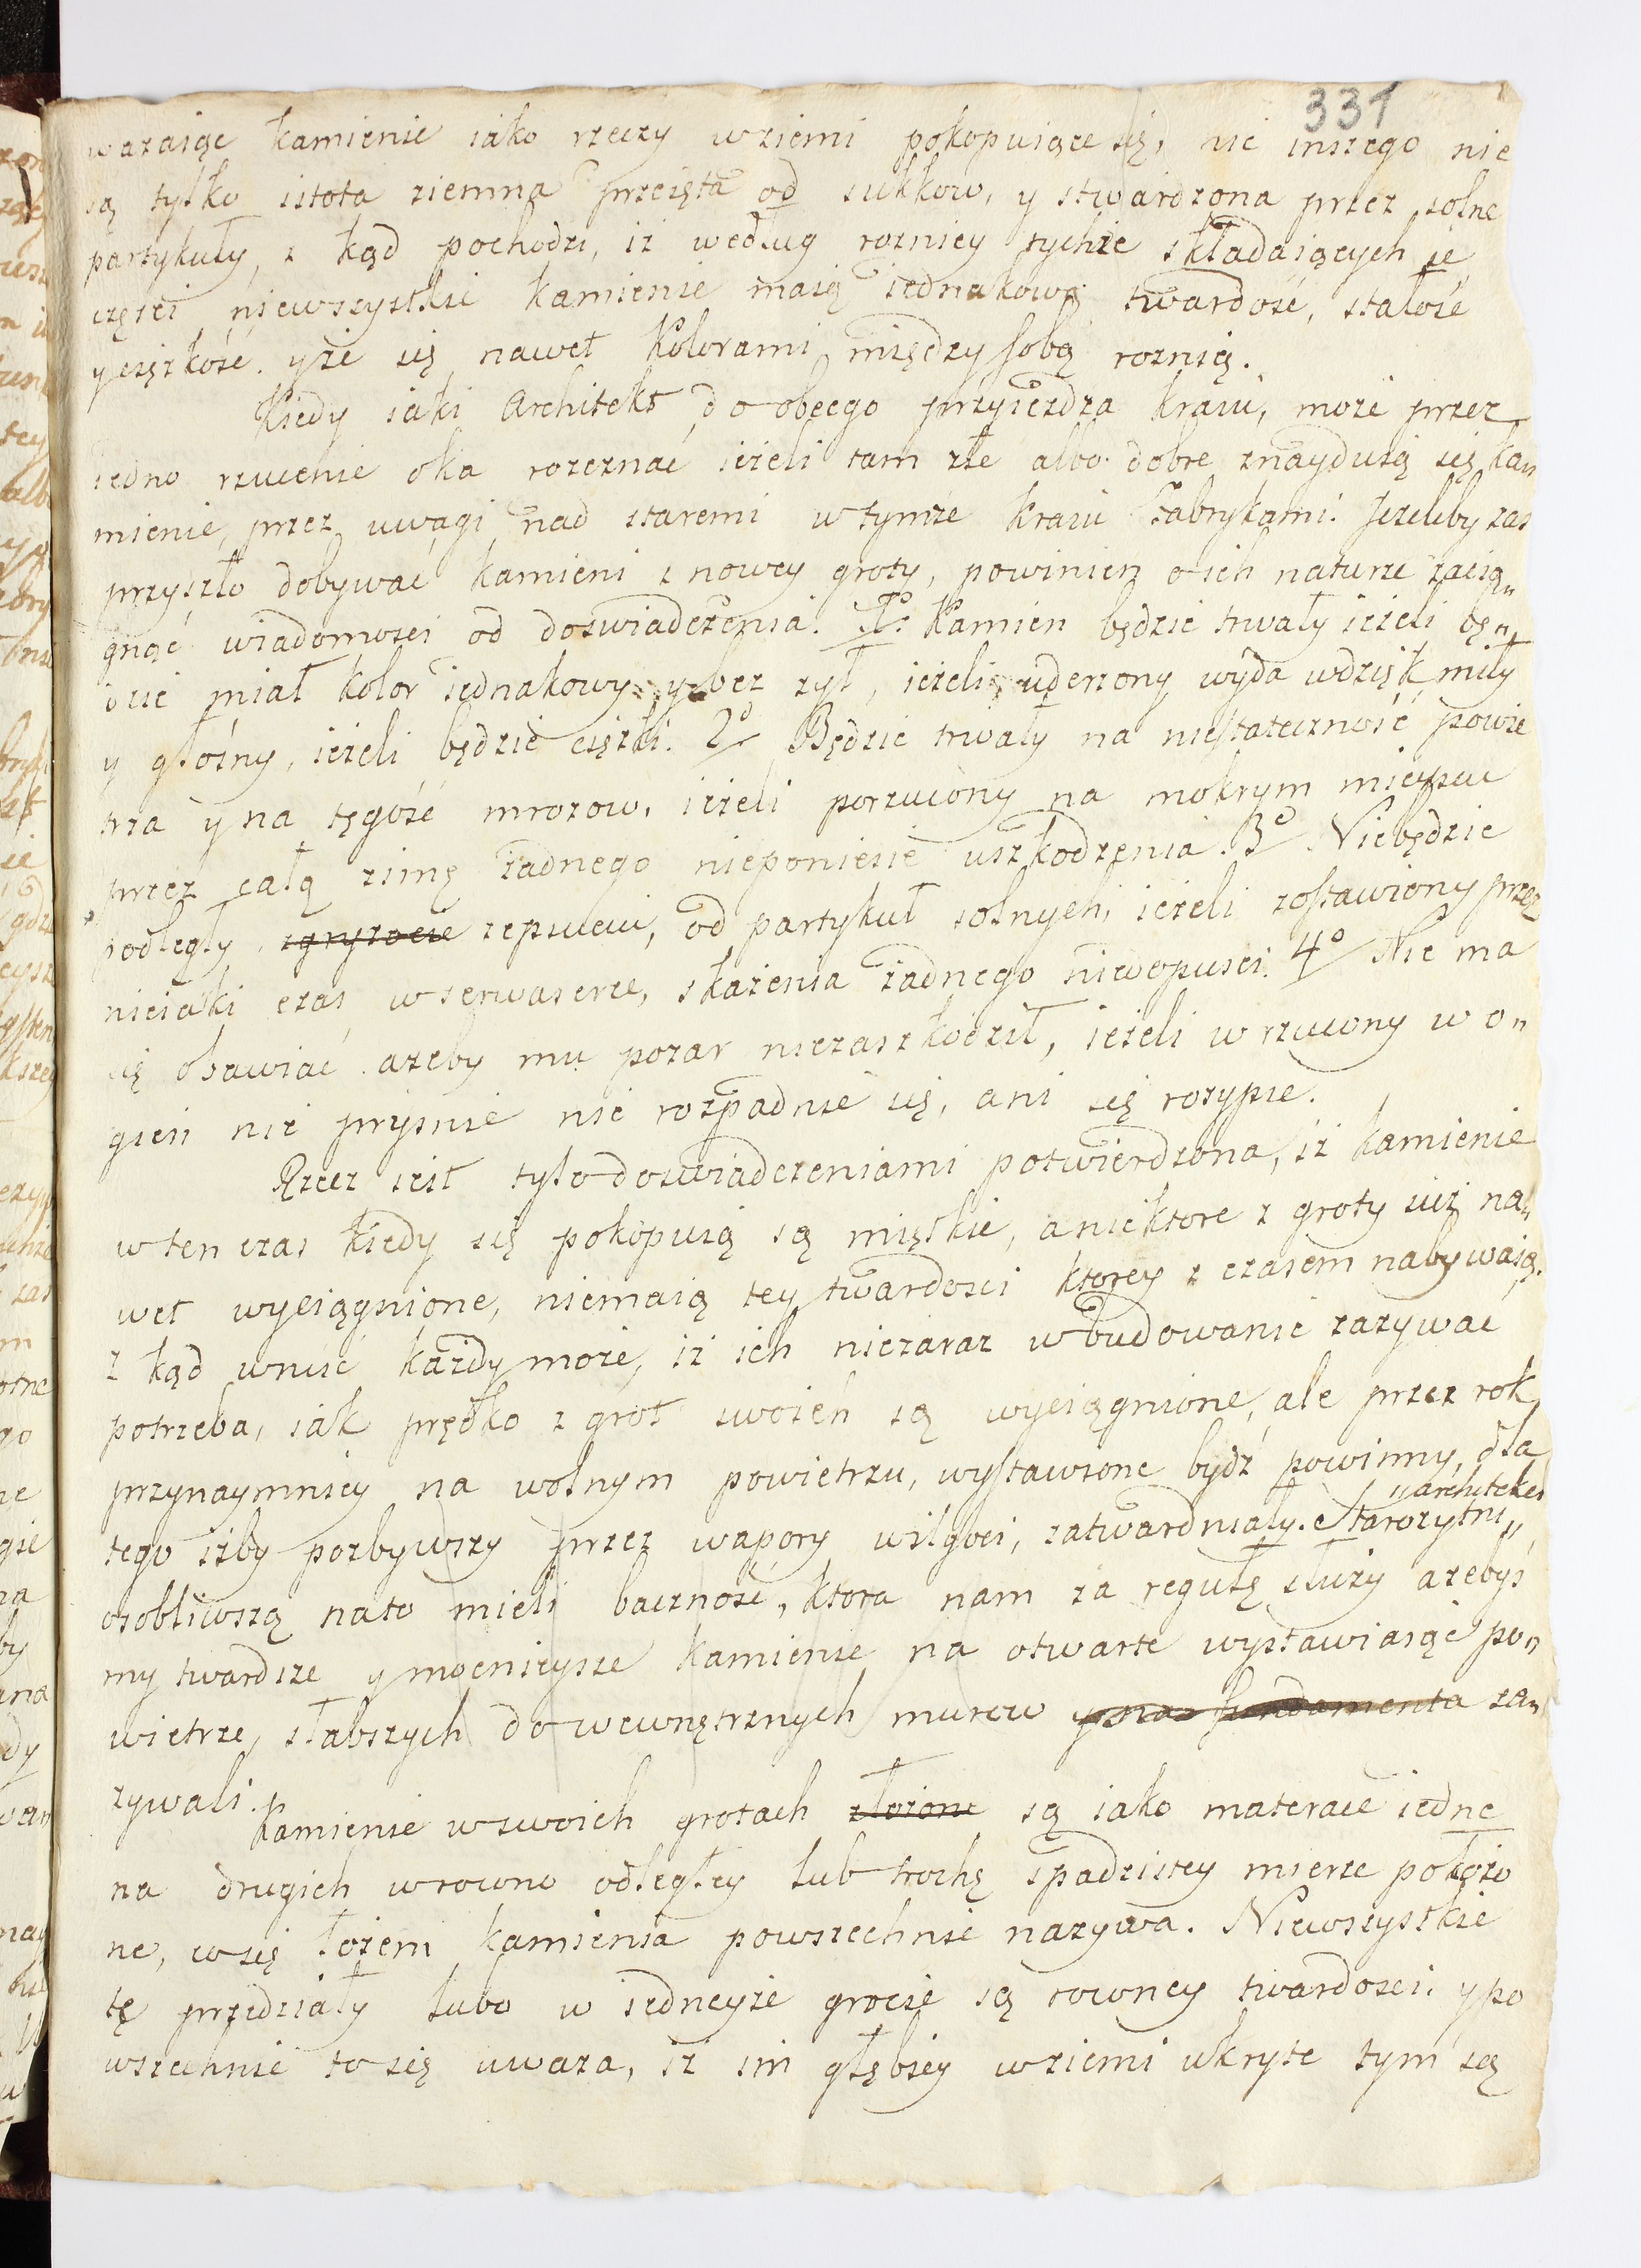 331
wazaiąc kamienie iako rzeczy w ziemi pokopuiące się, nic inszego nie
są tylko istota ziemna przeięta od sukkow, y stwardzona przez solne
partykuły, z kąd pochodzi, iz według roznicy tychże składaiących się
części niewszystkie kamienie maią iednakową twardość, stałość
y cięzkość. y że się nawet kolorami między sobą roznią.
Kiedy iaki Architekt do obcego przyieżdza kraiu, może przez
iedno rzucenie oka rozeznać ieżeli tam złe albo dobre znayduią się ka„
mienie, przez uwagi nad staremi w tymże kraiu Fabrykami. Jezeliby zas
przyszło dobywać kamieni z nowey groty, powinien o ich naturze zacią„
gnąć wiadomosci od doswiadczenia. 1º Kamien będzie trwały ieżeli bę„
dzie miał kolor iednakowy y bez zył, ieżeli uderzony wyda wdzięk miły
y głośny, ieżeli będzie cięzki. 2º Będzie trwały na niestateczność powie
trza y na tęgość mrozow, ieżeli porzucony na mokrym mieyscu
przez całą zimę żadnego nieponiesie uszkodzenia. 3º Niebędzie
podległy zgryzocie zepsuciu, od partykuł solnych, ieżeli zostawiony przez
nieiaki czas w serwaserze, skażenia żadnego niedopusci. 4º Nie ma
się obawiać ażeby mu pozar niezaszkodził, ieżeli wrzucony w o„
gień nie pryśnie nie rozpadnie się, ani się rozypie.
Rzecz iest tylo doswiadczeniami potwierdzona, iż kamienie
w ten czas kiedy się pokopuią są miętkie, a niektore z groty iuż na„
wet wyciągnione, niemaią tey twardosci ktorey z czasem nabywaią.
z kąd wnieść każdy może, iż ich niezaraz w budowanie zazywać
potrzeba, iak prędko z grot swoich są wyciągnione, ale przez rok
przynaymniey na wolnym powietrzu, wystawione bydź powinny, dla
tego iżby pozbywszy przez wapory wilgoci, zatwardniały. Starozytni
„architekci
osobliwszą na to mieli baczność, ktora nam za regułę służy ażebyś
my twardsze y mocnieysze kamienie na otwarte wystawiaiąc po„
wietrze, słabszych do wewnętrznych murow y na fundamenta za„
zywali.
Kamienie w swoich grotach złożone są iako materace iedne
na drugich w rowno odległey lub trochę spadzistey mierze położo
ne, co się łożem kamienia powszechnie nazywa. Niewszystkie
tę przedziały lubo w iedneyże grocie są rowney twardosci. y po
wszechnie to się uwaza, iż im głębiey w ziemi ukryte tym są